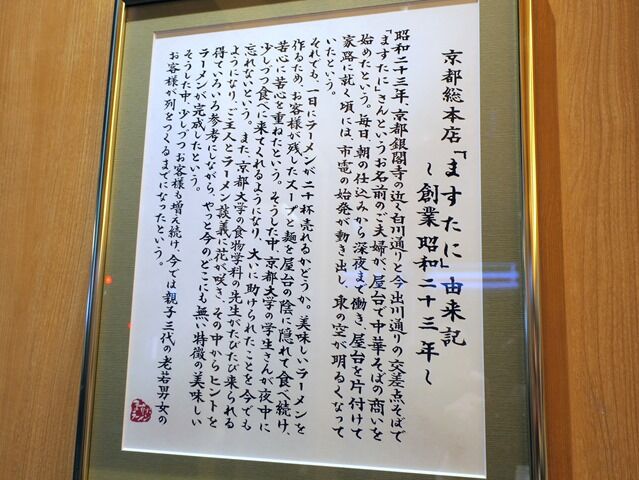 京都総本店「ますたに」由来記
～創業昭和二十三年～
昭和二十三年、京都銀閣寺の近く白川通りと今出川通りの交差点そばで
「ますたに」さんというお名前のご夫婦が、屋台で中華そばの商いを
始めたという。毎日、朝の仕込みから深夜まで働き、屋台を片付けて
家路に就く頃には、市電の始発が動き出し、東の空が明るくなって
いたという。
それでも、一日にラーメンが二十杯売れるかどうか。美味しいラーメンを
作るため、お客様が残したスープと麺を屋台の陰に隠れて食べ続け、
苦心に苦心を重ねたという。そうした中、京都大学の学生さんが夜中に
少しづつ食べに来てくれるようになり、大いに助けられたことを今でも
忘れないという。また、京都大学の食物学科の先生がたびたび来られる
ようになり、ご主人とラーメン談義に花が咲き、その中からヒントを
得ていろいろ参考にしながら、やっと今のどこにも無い特徴の美味しい
ラーメンが完成したという。
そうした中、少しづつお客様も増え続け、今では親子三代の老若男女の
お客様が列をつくるまでになったという。